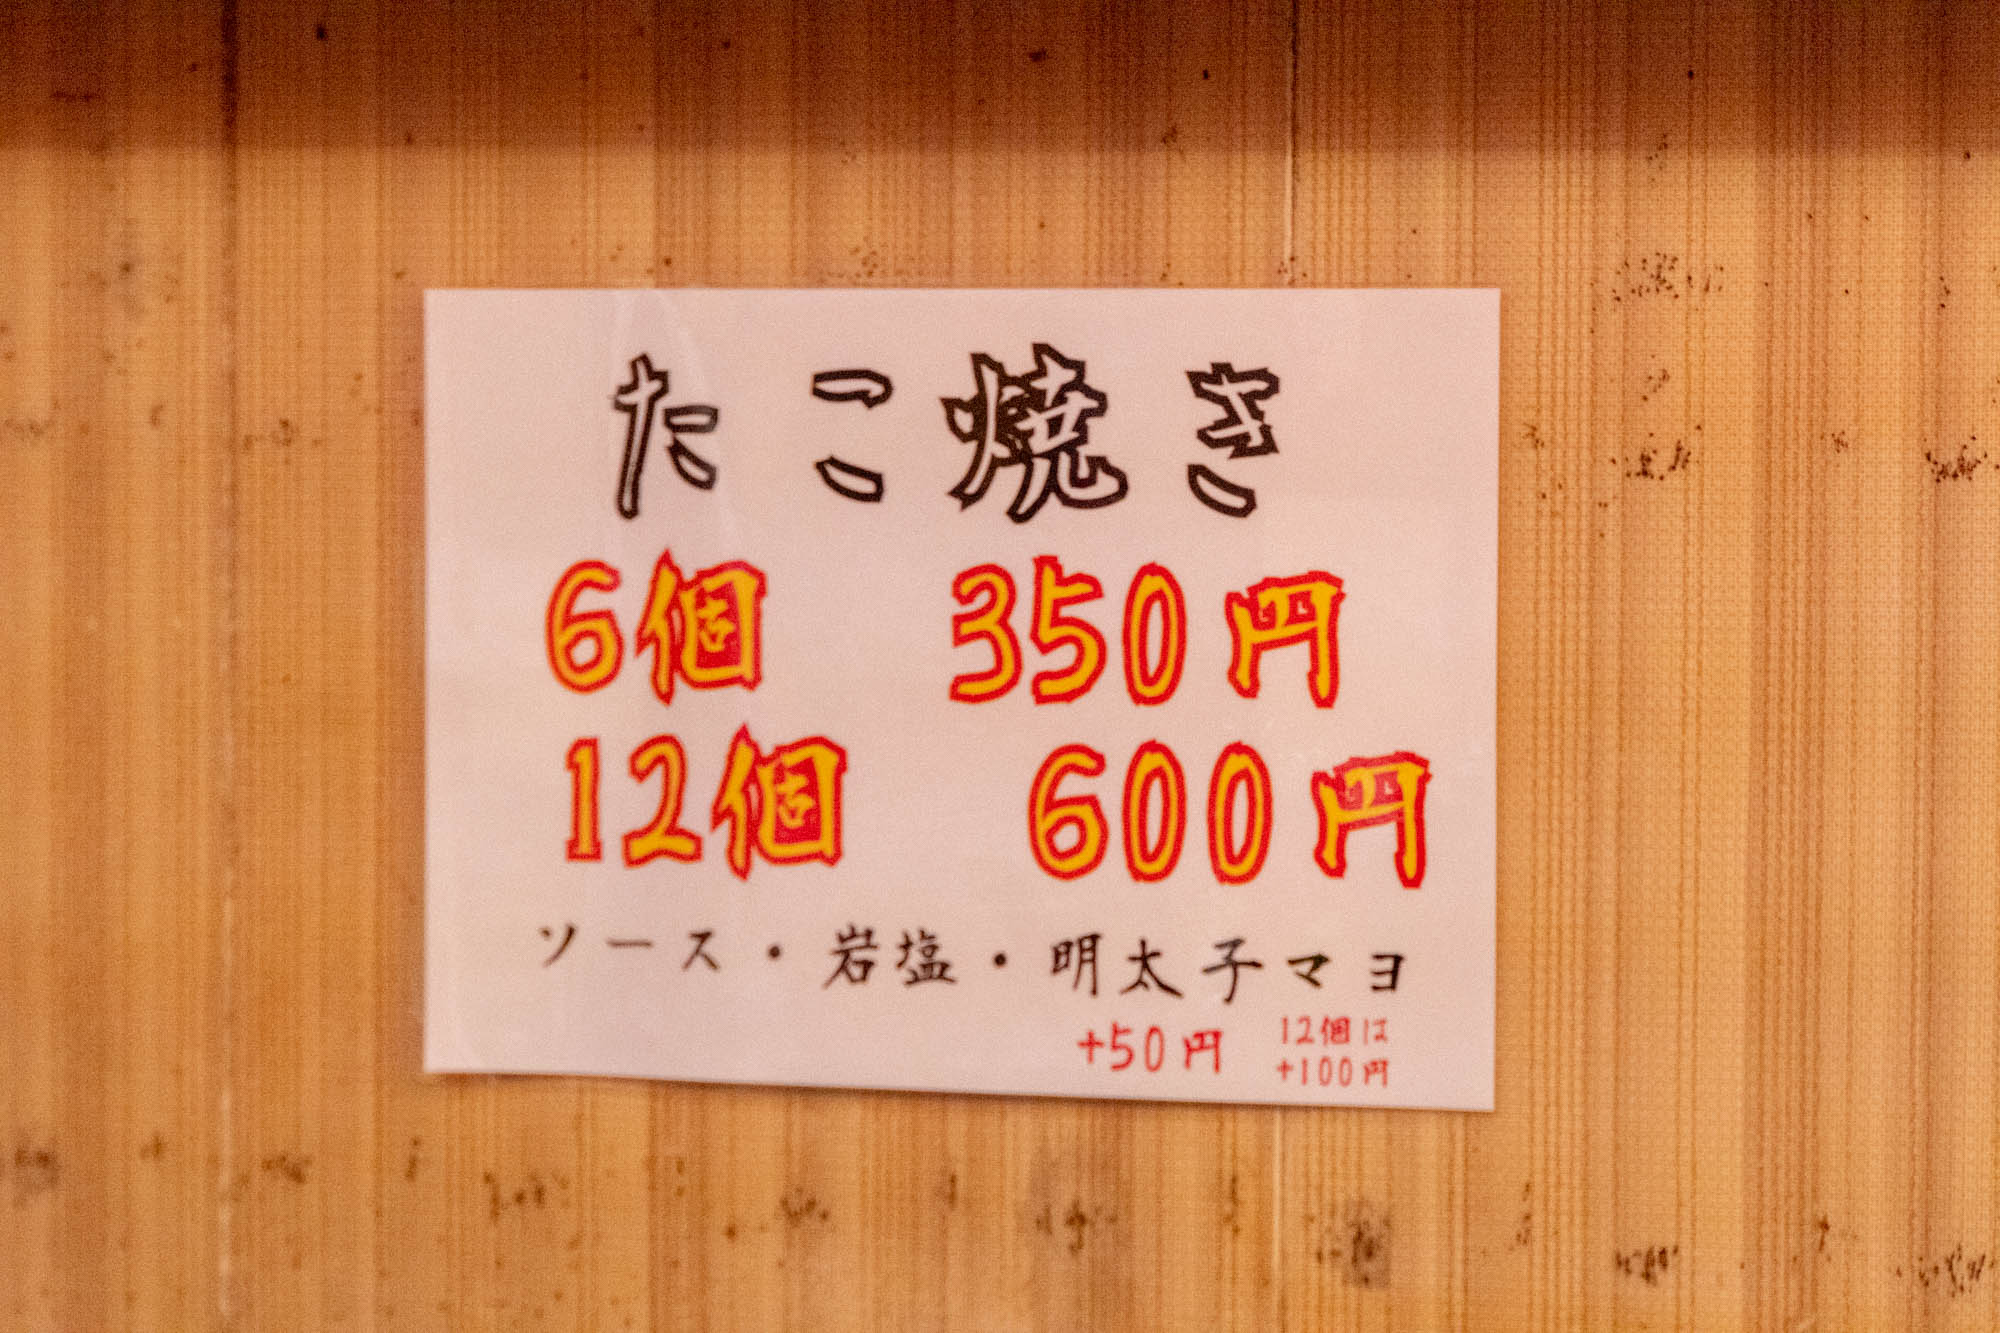 たこ焼き
6個 350円
12個 600円
ソース・岩塩・明太子マヨ
+50円 12個は
+100円